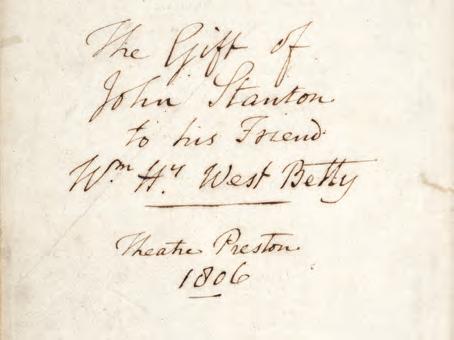 The Gift of
John Stanton
to his Friend
Wm Hy West Betty
Theatre Preston
1806